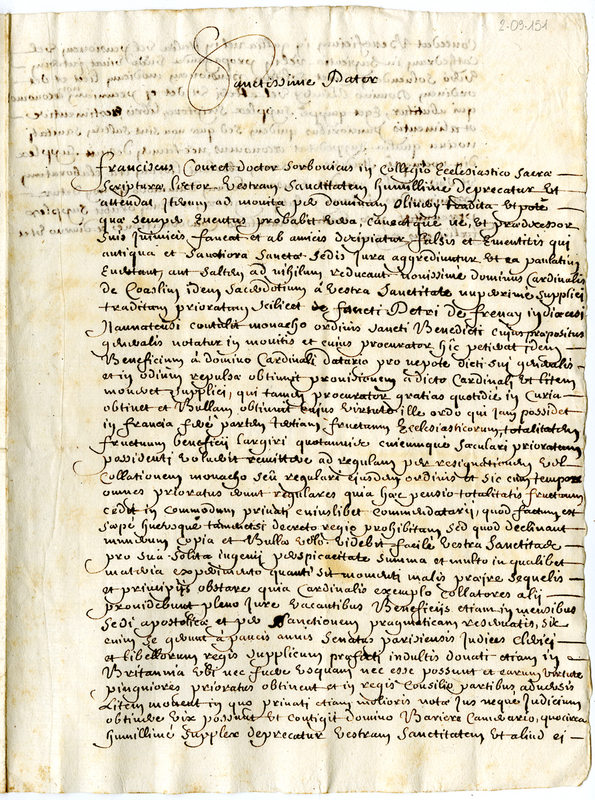 2-09-151
Sanctissime Pater
Franciscus Couret doctor Sorbonicus in Collegio Ecclesiastico Sacræ
Scripturæ lector Vestram Sanctitatem humillime deprecatur ut
attendat iterum ad monita per dominum tradita et pote
quæ semper eventus probabit vera, caveatque ne, ut prædecessor
suis inimicis faveat et ab amicis decipiatur falsis et ementitis qui
antiqua et sanctiora Sanctæ Sedis Jura aggrediuntur, ut ea paulatim
evertant, aut saltem ad nihilum reducant. novissime dominus Cardinalis
de Coaslin idem sacerdotium a Vestra Sanctitate nuperrime supplici
traditum prioratum scilicet de sancti Petri de frenay in diœcesi
Nannetensi contulit monacho ordinis sancti Benedicti cuius præpositus
generalis notatur in monitis et cuius procurator hic petierat idem
Beneficium a domino Cardinali datario pro nepote dicti sui generalis
et in odium repulsæ obtinuit provisionem a dicto Cardinali et litem
movet supplici, qui tamen procurator gratias quotidie in Curia
obtinet et Bullam obtinuit cuius virtute ille ordo qui jam possidet
in francia fere partem tertiam fructuum Ecclesiasticorum, totalitatem
fructuum beneficii largiri quotannis cuicumque sæculari prioratum
possidenti voluerit remittere ad regulam per resignationem vel
Collationem monacho seu regulari ejusdem ordinis et sic cum tempore
omnes prioratus erunt regulares quia hæc pensio totalitatis fructuum
cedit in commodum privati cuiuslibet commendatarii, quod factum est
sæpe hucusque tametsi decreto regio prohibitum sed quod declinant
Copia et Bulla videbit facile Vestra Sanctitas
pro sua solita ingenii perspicacitate summa et multo in qualibet
materia experimento quanti sit momenti malis præire sequelis
et principiis obstare quia Cardinalis exemplo Collatores alii
providebunt pleno Jure vacantibus Beneficiis etiam in mensibus
Sedi apostolicæ et per Sanctionem pragmaticam reservatis, sic
enim se gerunt a paucis annis Senatus parisiensis Judices clerici
et libellorum regis supplicum præfecti indultis donati etiam in
Britannia ubi nec fuere usquam nec esse possunt et earum virtute
pinguiores prioratus obtinent et in regis Consilio partibus adversis
Litem movent in quo privati etiam melioris notæ Jus neque Judicium
obtinere vix possunt, ut contigit domino Bariere Camerario, quocirca
humillime supplex deprecatur Vestram Sanctitatem ut aliud ei